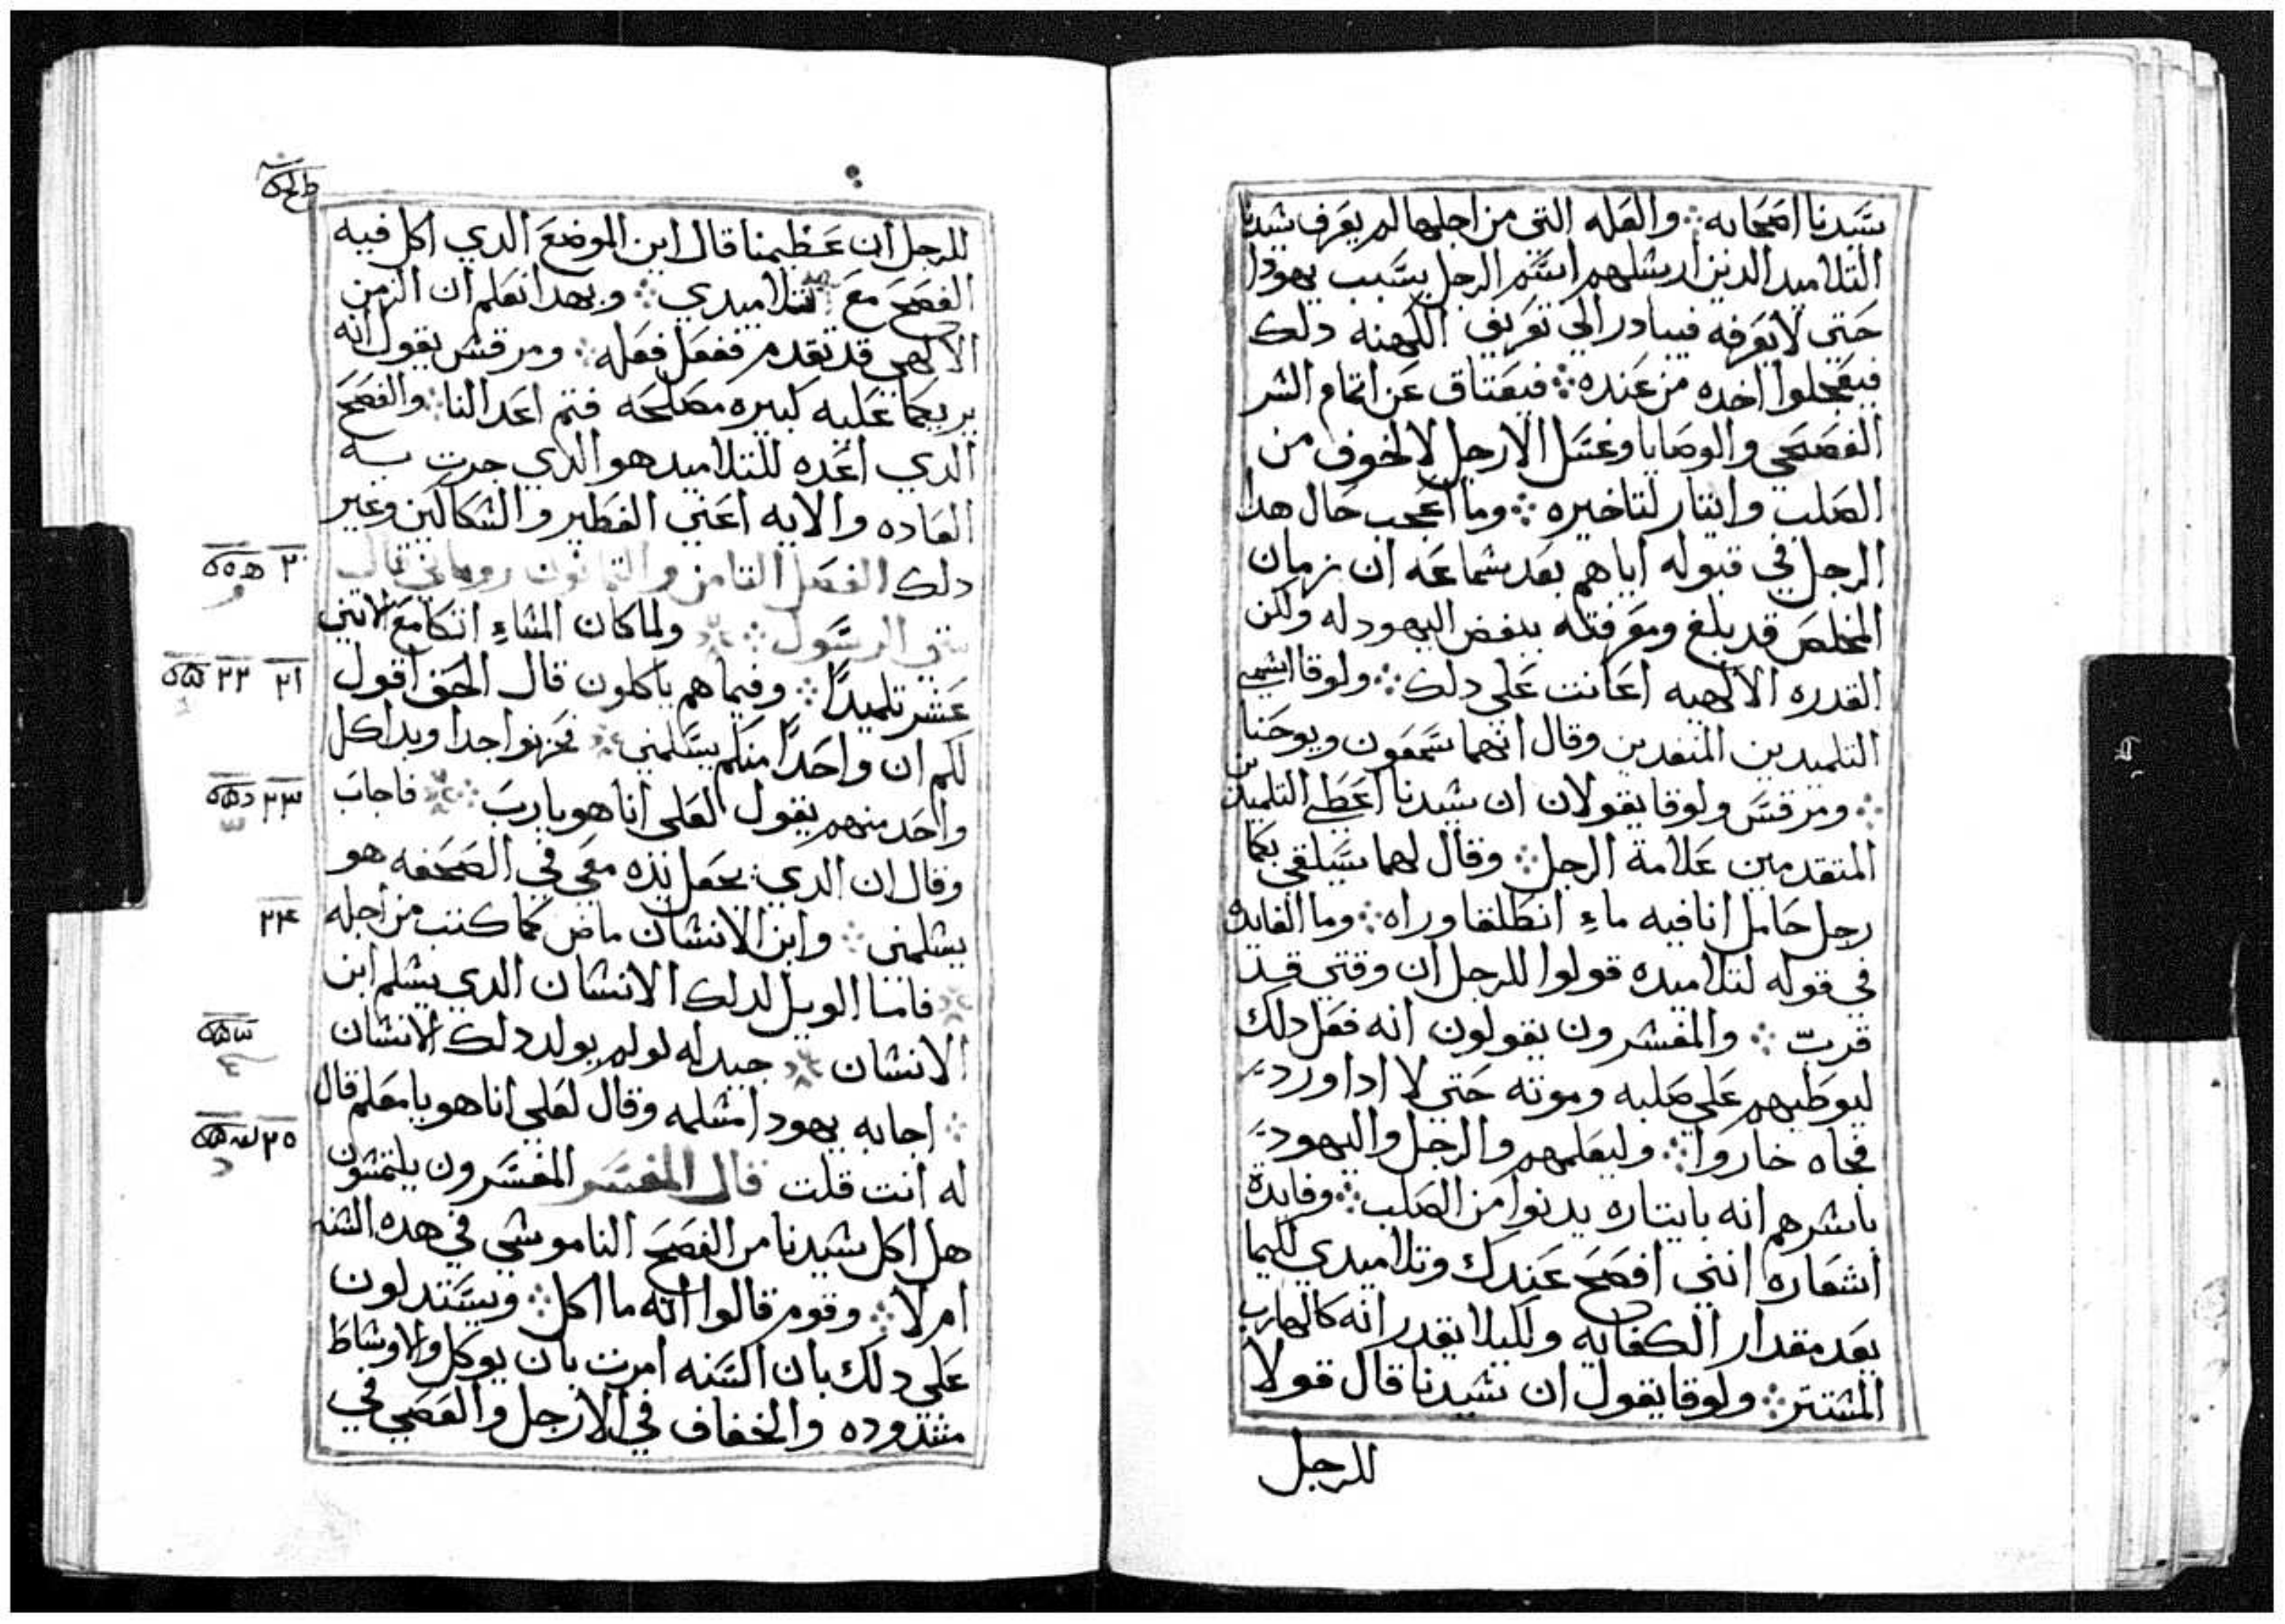 سَيدنا اصَحَابه ܀ والعَله التي من اجلها لم يعَرف شيدنا
التلاميد الدين ارشلهم اسَم الرجل بسَبب يهودا
حَتى لا يعَرفه فيبادر الى تعَريف الكهنه دلك
فيعَجلوا اخده من عَنده ܀ فيعَتاق عَن اتمام الشر
الفصَحَي والوصَايا وغسَل الارجل لا لخوف من
الصَلب وايتار لتاخيره ܀ وما اعَجب حَال هدا
الرجل في قبوله اياهم بعَد شماعَه ان زمان
المخلصَ قد بلغ ومعَرفتَه ببغض اليهود له ولكن
القدره الالهيه اعَانت عَلى دلك ܀ ولوقا اشمى
التلميدين المنفدين وقال انهما سَمعَون ويوحَنا
܀ ومرقسَ ولوقا يقولان ان شيدنا اعَطى التلميدين
المتقدمين عَلامة الرجل ܀ وقال لهما سَيلقي بكما
رجل حَامل انا فيه ماء انطَلقا وراه ܀ وما الفايده
في قوله لتلاميده قولوا للرجل ان وقتي قد
قربت ܀ والمفشرون يقولون انه فعَل دلك
ليوطَيهم عَلى صَلبه وموته حَتى لا ادا ورد
فجاه خاروا ܀ وليعَلمهم والرجل واليهود
باشرهم انه بايتاره يدنوا من الصَلب ܀ وفايدة
اشعَاره انني افصَحَ عَندك وتلاميدي لكيما
يعَد مقدار الكفايه ولكيلا يقدر انه كالهارب
المشتتر ܀ ولوقا يقول ان شيدنا قال قولا
للرجل
للرجل ان عَظيمنا قال اين الموضعَ الدي اكل فيه
الفصَحَ معَ تلاميدي ܀ وبهدا نعَلم ان الزمن
الالهي قد تقدم ففعَل فعَله ܀ ومرقسَ يقول انه
يريكما عَليه كبيره مصَلحَه فتم اعَدا لنا ܀ والفصَحَ
الدي اعَده للتلاميد هو الدي جرت به
العَاده والايه اعَني الفطَير والشكالَين وغير
دلك الفصَل التامن والتمانون روماني قال
متي الرسَول ܀ ولما كان المشاء اتكا معَ الاتني
عَشر تلميدًا ܀ وفيما هم ياكلون قال الحَق اقول
لكم ان واحَدًا منكم يسَلمني ܀ فحَزنوا جدا وبدا كل
واحَد منهم يقول لعَلى انا هو يا ربَ ܀ فاجابَ
وقال ان الدي يجعَل يده معَي في الصَحَفه هو
يشلمني ܀ وابن الانشان ماض كما كتب من اجله
܀ فاما الويل لدلك الانشان الدي يشلم ابن
الانشان ܀ جيد له لو لم يولد دلك الانشان
܀ اجابه يهودا مشلمه وقال لعَلي انا هو يا معَلم قال
له انت قلت قال المفسَر المفسَرون يلتمشون
هل اكل شيدنا من الفصَحَ الناموشي في هده الشنه
ام لا ܀ وقوم قالوا انه ما اكل ܀ ويسَتدلون
عَلى دلك بان السَنه امرت بان يوكل والاوشاطَ
مشدوده والخفاف في الارجل والعَصَي في
٢٠
٢١ ٢٢
٢٣
٢٤
٢٥